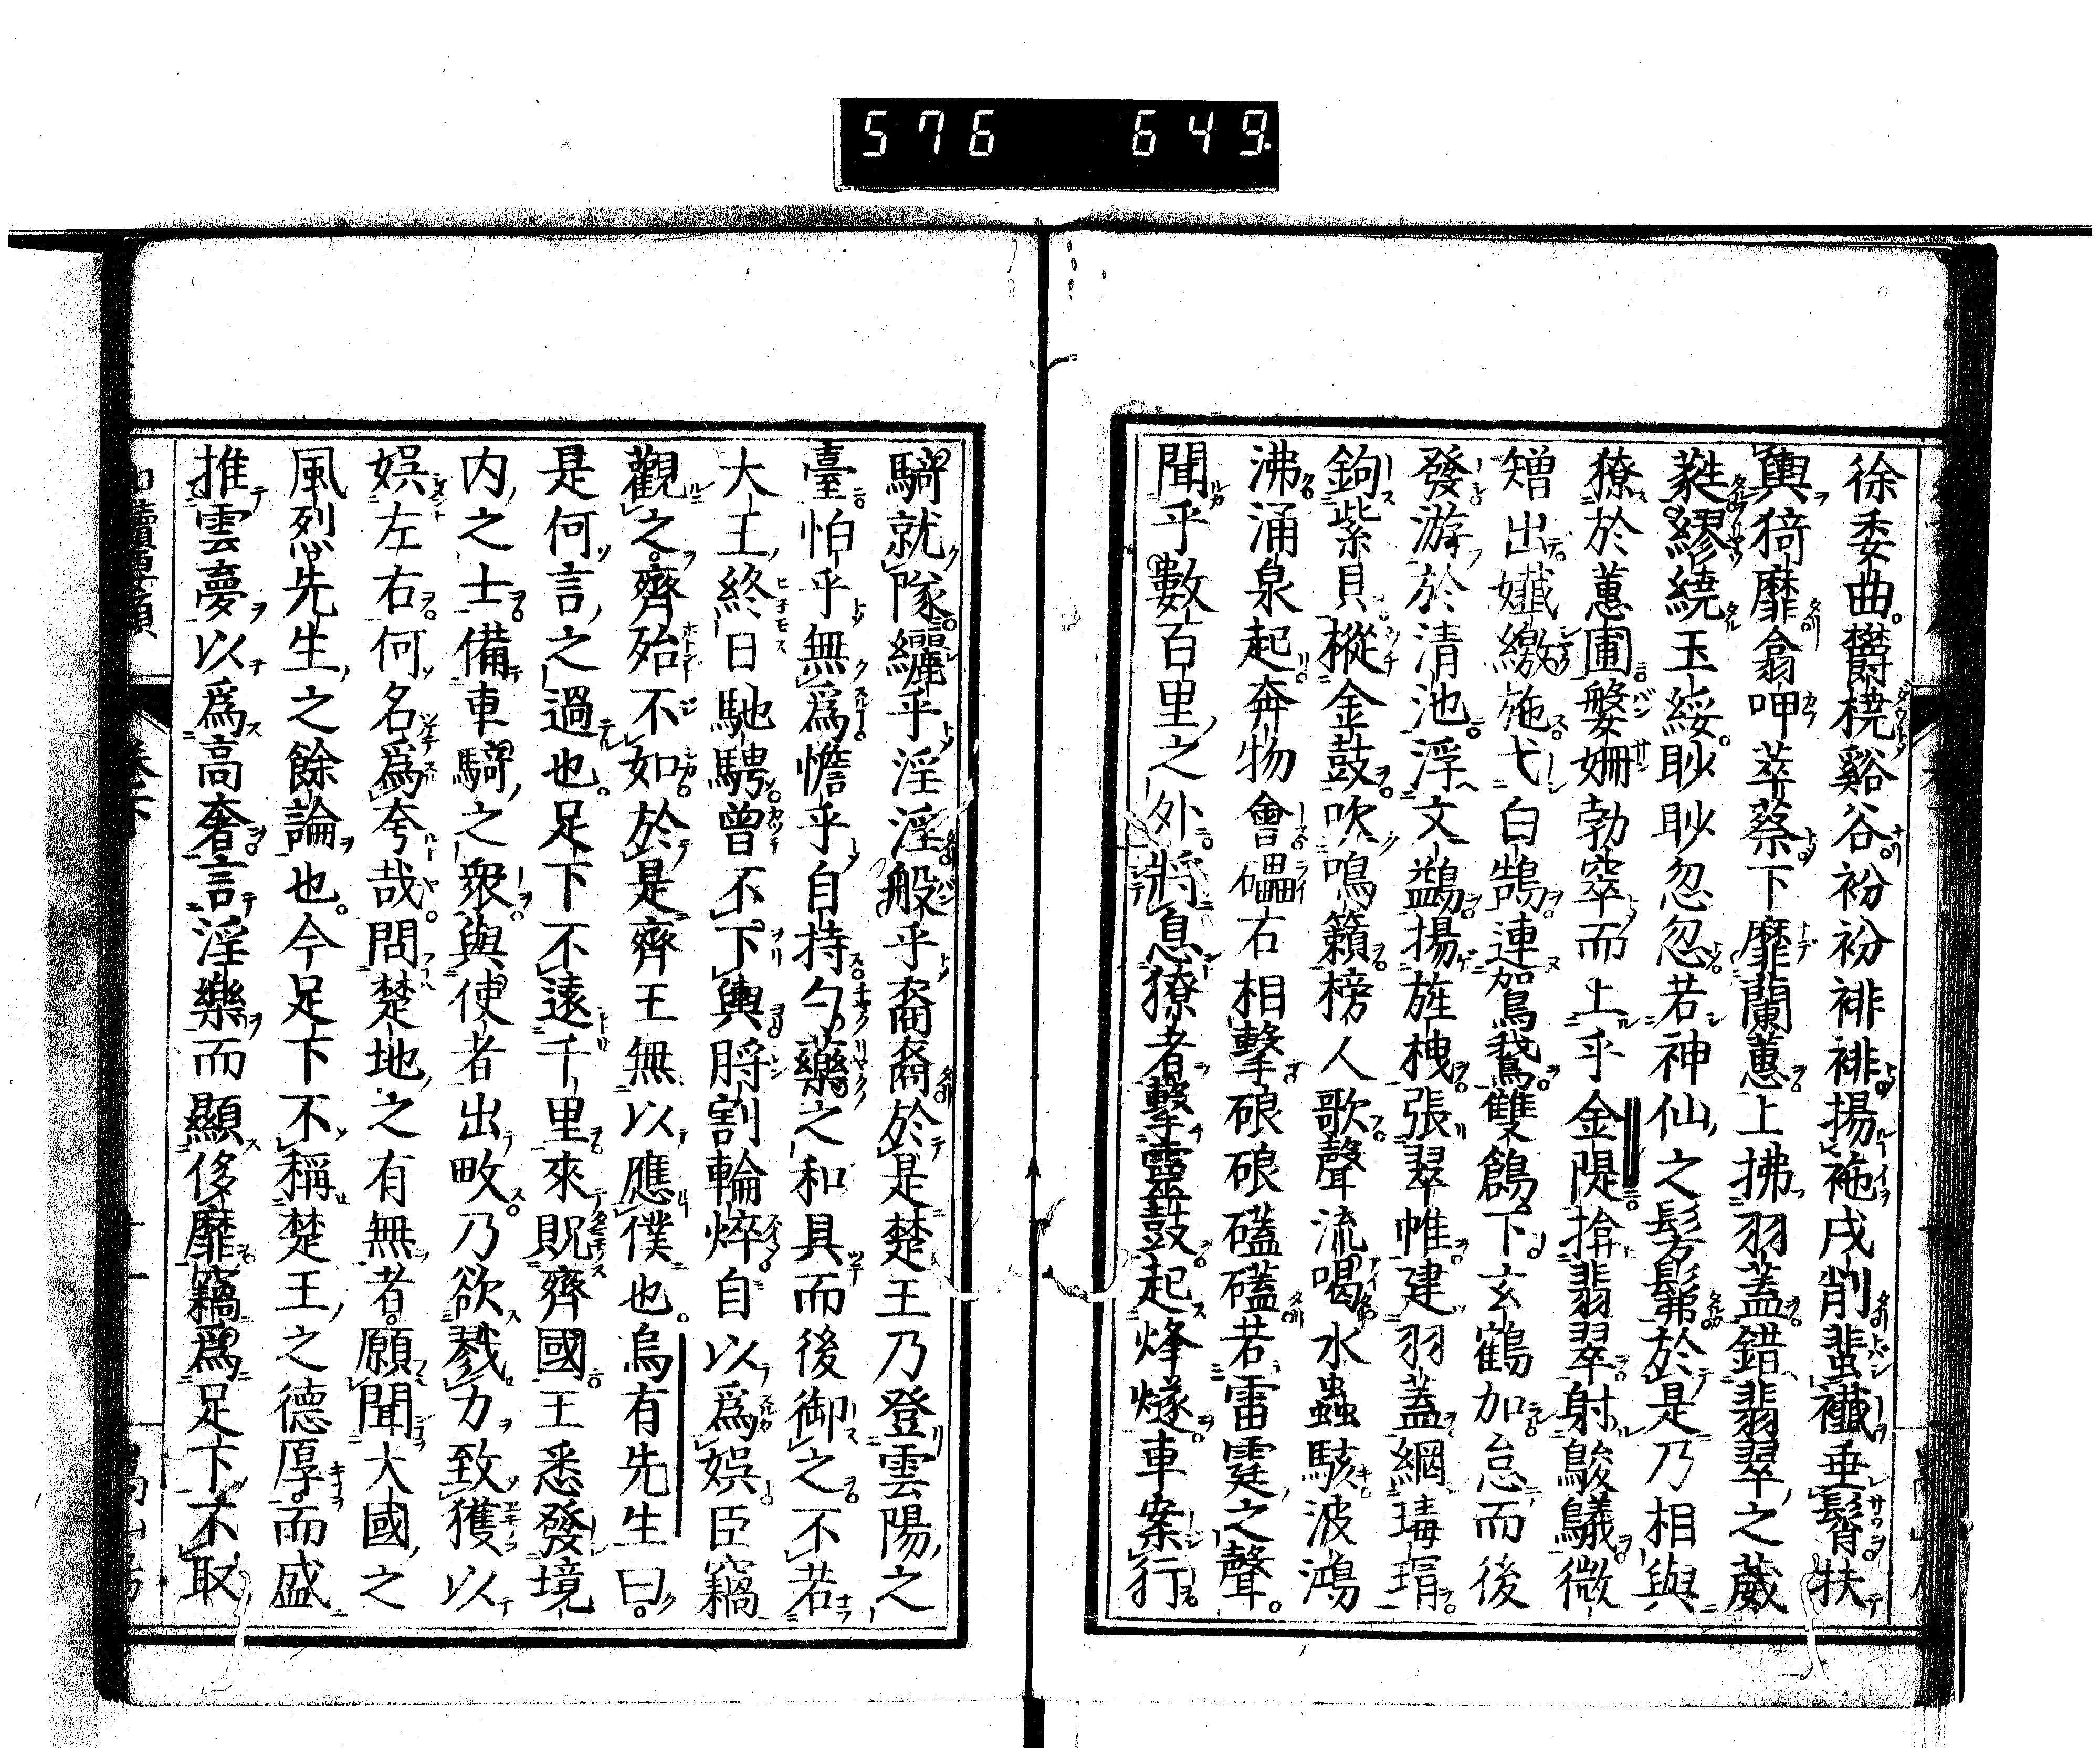 576 649
徐委曲欝橈谿谷衯衯裶裶揚袘戌削蜚襳垂髾扶
輿猗靡翕呷萃蔡下靡蘭蕙上拂羽蓋錯翡翠之葳
蕤繆繞玉綏眇眇忽忽若神仙之髣髴於是乃相與
獠於蕙圃媻姍勃窣而上乎金隄揜翡翠射鵔鸃微
矰出孅繳施弋白鵠連鴐鵞雙鶬下玄鶴加怠而後
發游於清池浮文鷁揚旌栧張翠帷建羽蓋網瑇瑁
鉤紫貝摐金鼓吹鳴籟榜人歌聲流喝水蟲駭波鴻
沸涌泉起奔物會礧石相擊硠硠礚礚若雷霆之聲
聞乎數百里之外將息獠者擊靈鼓起烽燧車案行
騎就隊纚乎淫淫般乎裔裔於是楚王乃登雲陽之
臺怕乎無爲憺乎自持勺藥之和具而後御之不若
大王終日馳騁曾不下輿脟割輪焠自以爲娯臣竊
觀之齊殆不如於是齊王無以應僕也烏有先生曰
是何言之過也足下不遠千里來貺齊國王悉發境
内之士備車騎之衆與使者出畋乃欲戮力致獲以
娯左右何名爲夸哉問楚地之有無者願聞大國之
風烈先生之餘論也今足下不稱楚王之德厚而盛
推雲夢以爲高奢言淫樂而顯侈靡竊爲足下不取